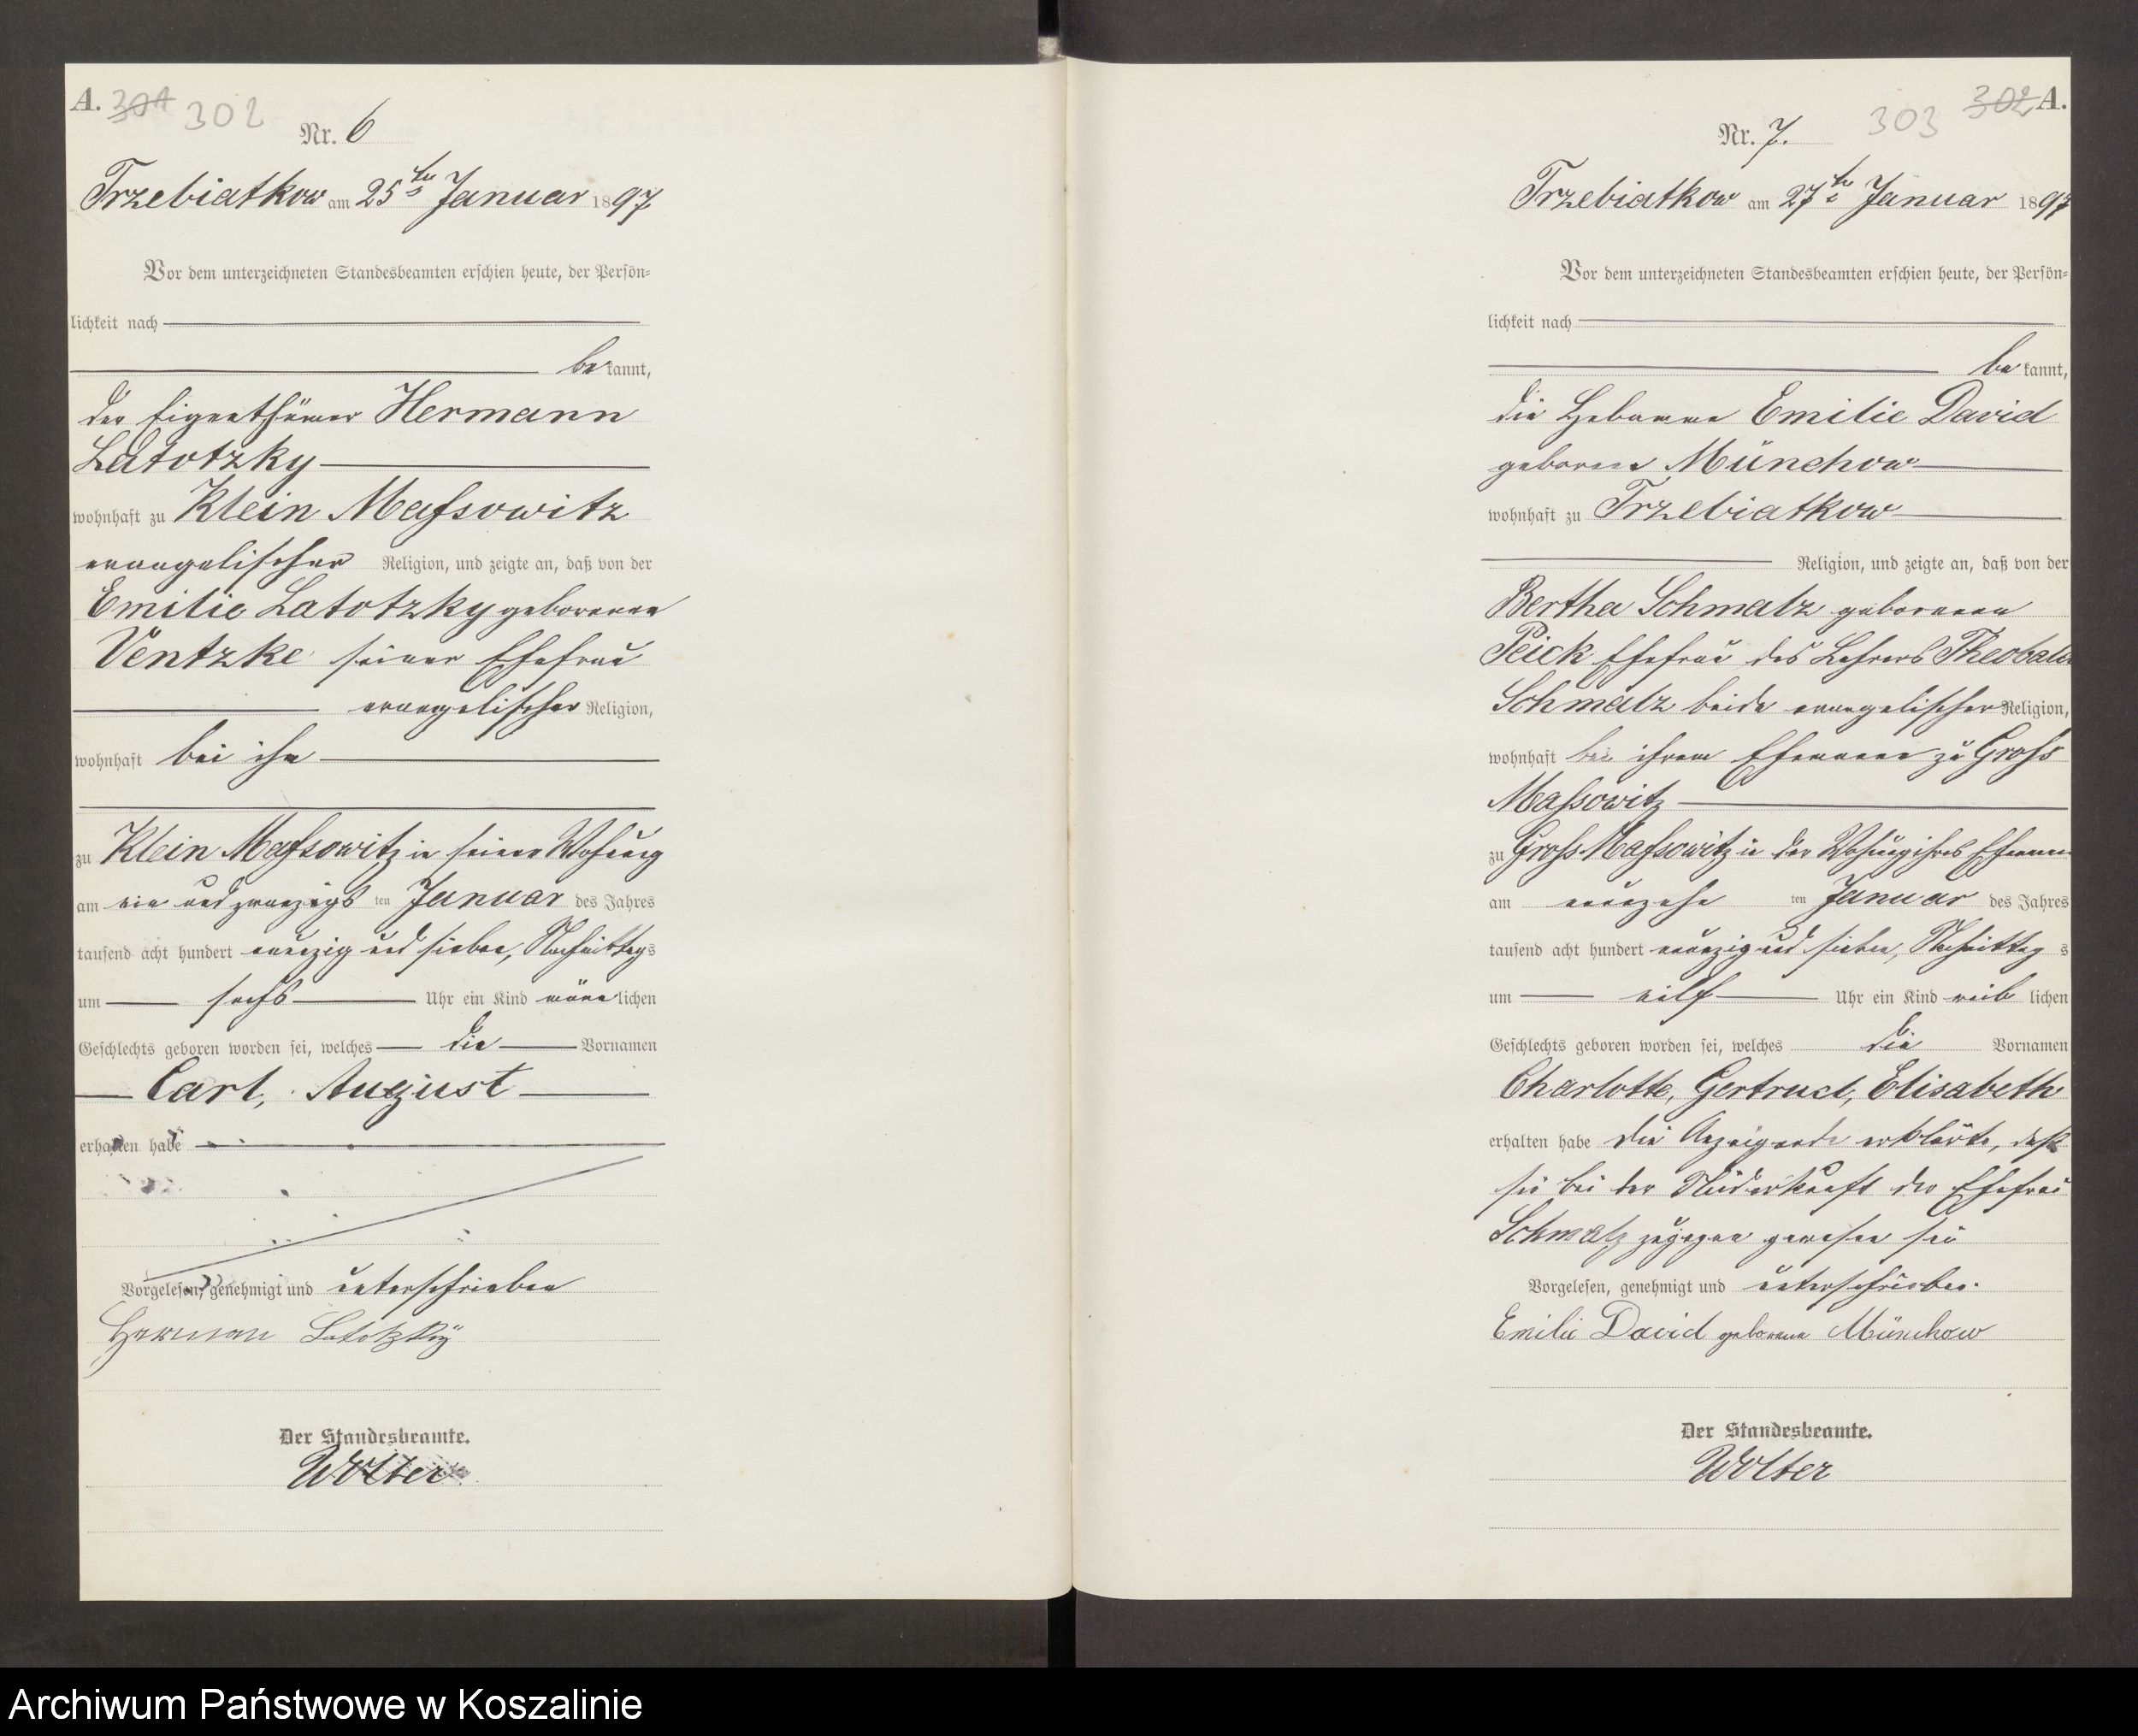 A. 301 302
Nr. 6
Trzebiatkow am 25ten Januar 1897
Vor dem unterzeichneten Standesbeamten erschien heute, der Persön-
lichkeit nach
be kannt,
der Eigenthümer Hermann
Latotzky
wohnhaft zu Klein Massowitz
evangelischer Religion, und zeigte an, daß von der
Emilie Latotzky geborenen
Ventzke seiner Ehefrau
evangelischer Religion,
wohnhaft bei ihm
zu Klein Massowitz in seiner Wohnung
am ein und zwanzigs ten Januar des Jahres
tausend acht hundert neunzig und sieben, Nachmittags
um sechs Uhr ein Kind männ lichen
Geschlechts geboren worden sei, welches die Vornamen
Carl, August
erhalten habe
Vorgelesen, genehmigt und unterschrieben
Herman Latotzky
Der Standesbeamte.
Wolter
303 302 A.
Nr. 7.
Trzebiatkow am 27ten Januar 1897
Vor dem unterzeichneten Standesbeamten erschien heute, der Persön-
lichkeit nach
be kannt,
die Hebamme Emilie David
geborene Münchow
wohnhaft zu Trzebiatkow
Religion, und zeigte an, daß von der
Bertha Schmalz geborenen
Peick Ehefrau des Lehrers Theobald
Schmalz beide evangelischer Religion,
wohnhaft bei ihrem Ehemann zu Gross
Massowitz
zu Gross Massowitz in der Wohnung ihres Ehemann
am neunzehn ten Januar des Jahres
tausend acht hundert neunzig und sieben, Nachmittag s
um eilf Uhr ein Kind weib lichen
Geschlechts geboren worden sei, welches die Vornamen
Charlotte, Gertrud, Elisabeth
erhalten habe die Anzeigende erklärte, daß
sie bei der Niederkunft der Ehefrau
Schmalz zugegen gewesen sei
Vorgelesen, genehmigt und unterschrieben.
Emilie David geborene Münchow
Der Standesbeamte.
Wolter
Archiwum Państwowe w Koszalinie